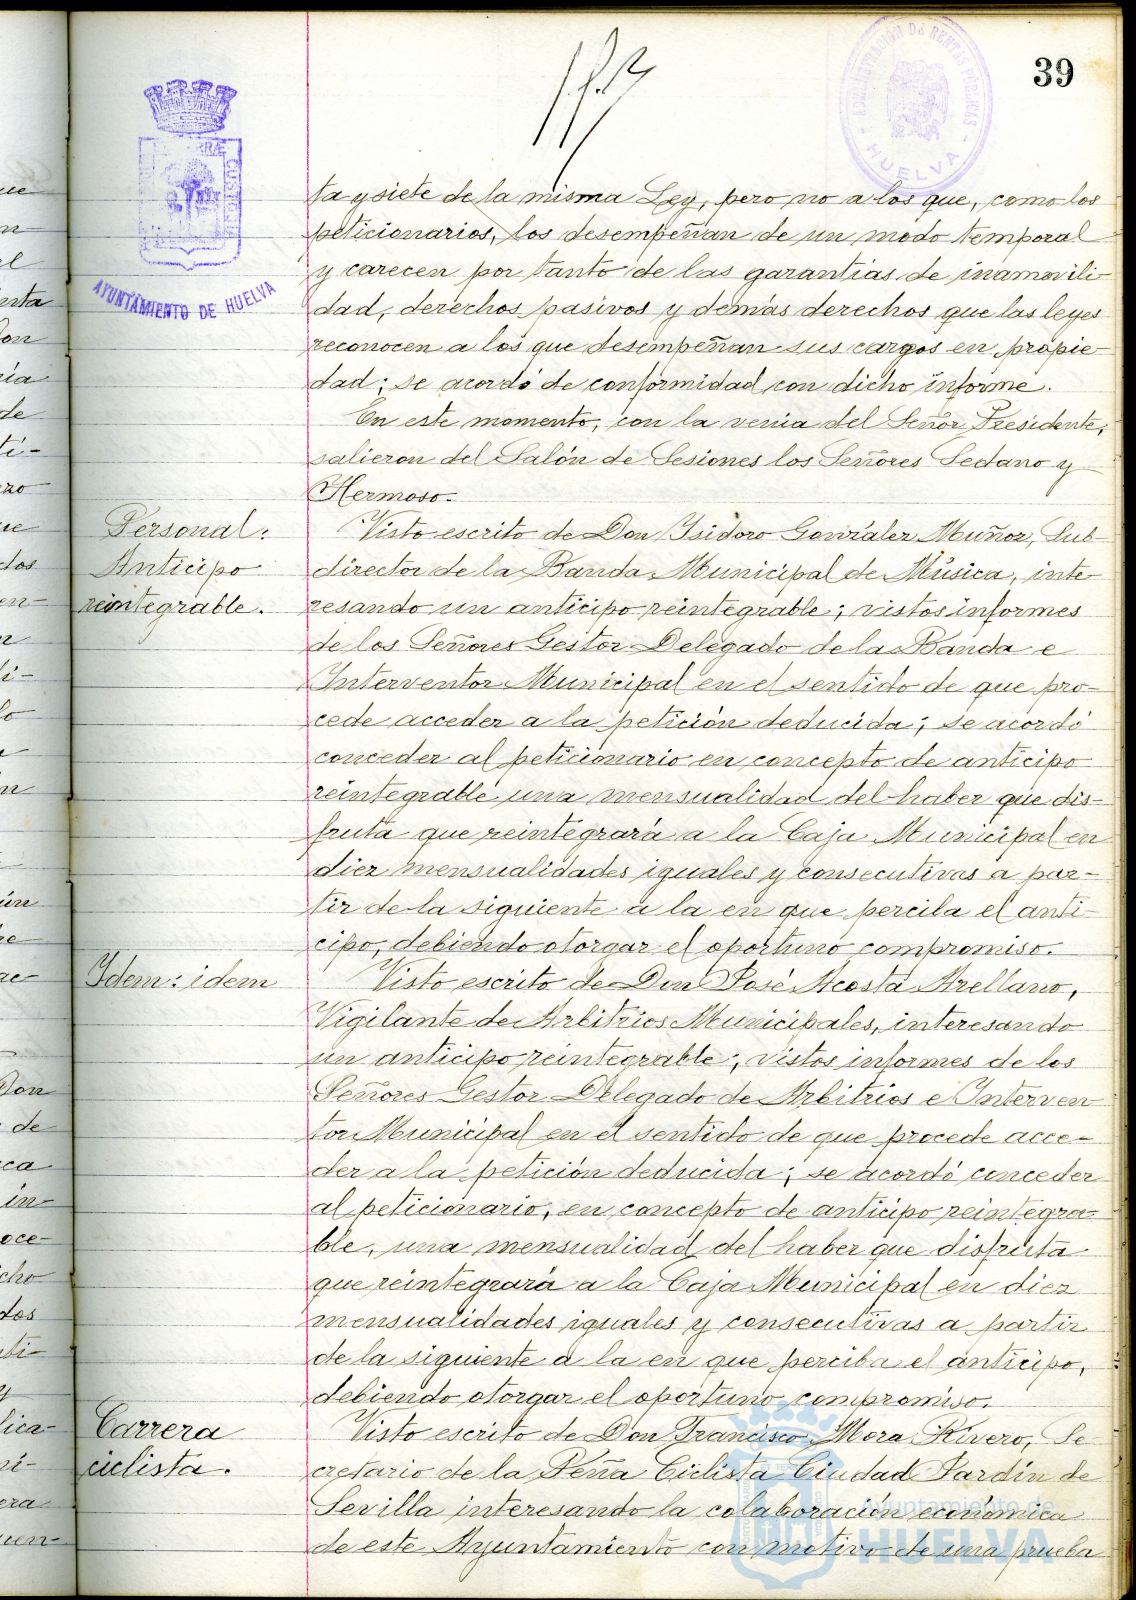 39
ADMINISTRACIÓN DE RENTAS PÚBLICAS
HUELVA
CUSTODIA
AYUNTAMIENTO DE HUELVA
ta y siete de la misma Ley, pero no a los que, como los
peticionarios, los desempeñan de un modo temporal
y carecen por tanto de las garantías de inamovili-
dad, derechos pasivos y demás derechos que las leyes
reconocen a los que desempeñan sus cargos en propie-
dad; se acordó de conformidad con dicho informe.
En este momento, con la venia del Señor Presidente,
salieron del Salón de Sesiones los Señores Sedano y
Hermoso.-
Personal:
Anticipo
reintegrable.
Visto escrito de Don Isidoro González Muñoz, Sub-
director de la Banda Municipal de Música, inte-
resando un anticipo reintegrable; vistos informes
de los Señores Gestor Delegado de la Banda e
Interventor Municipal en el sentido de que pro-
cede acceder a la petición deducida; se acordó
conceder al peticionario en concepto de anticipo
reintegrable una mensualidad del haber que dis-
fruta que reintegrará a la Caja Municipal en
diez mensualidades iguales y consecutivas a par-
tir de la siguiente a la en que perciba el anti-
cipo, debiendo otorgar el oportuno compromiso.
Idem: idem
Visto escrito de Don José Acosta Arellano,
Vigilante de Arbitrios Municipales, interesando
un anticipo reintegrable; vistos informes de los
Señores Gestor Delegado de Arbitrios e Interven-
tor Municipal en el sentido de que procede acce-
der a la petición deducida; se acordó conceder
al peticionario, en concepto de anticipo reintegra-
ble, una mensualidad del haber que disfruta
que reintegrará a la Caja Municipal en diez
mensualidades iguales y consecutivas a partir
de la siguiente a la en que perciba el anticipo,
debiendo otorgar el oportuno compromiso.
Carrera
ciclista.
Visto escrito de Don Francisco Mora Rivero, Se-
cretario de la Peña Ciclista Ciudad Jardín de
Sevilla interesando la colaboración económica
de este Ayuntamiento con motivo de una prueba
Ayuntamiento de
HUELVA